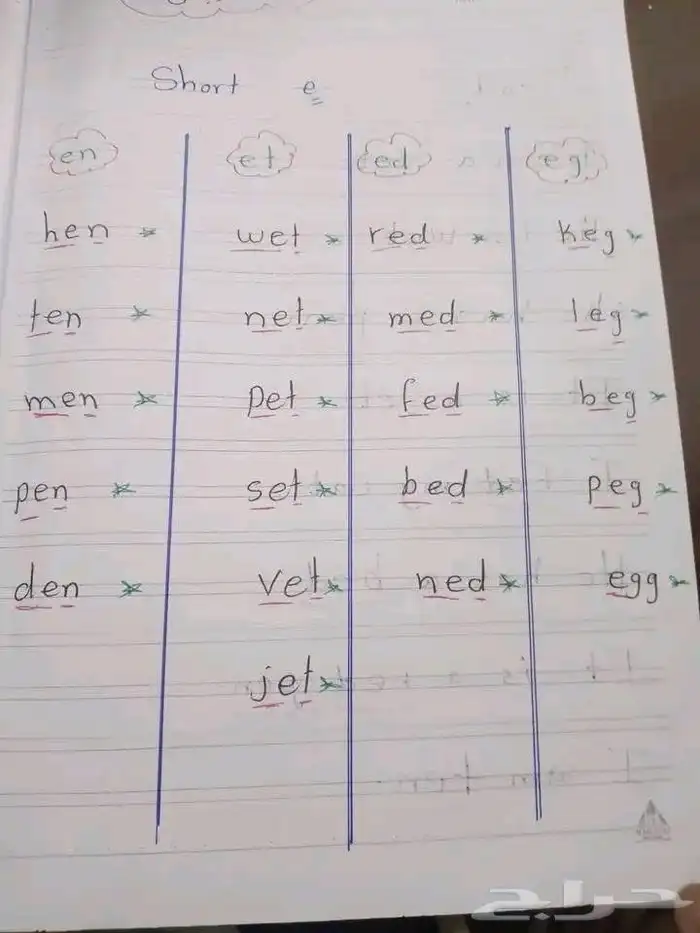 Short e
en et ed eg
hen * wet * red * keg *
ten * net * med * leg *
men * pet * fed * beg *
pen * set * bed * peg *
den * vet * ned * egg *
jet *
حراج